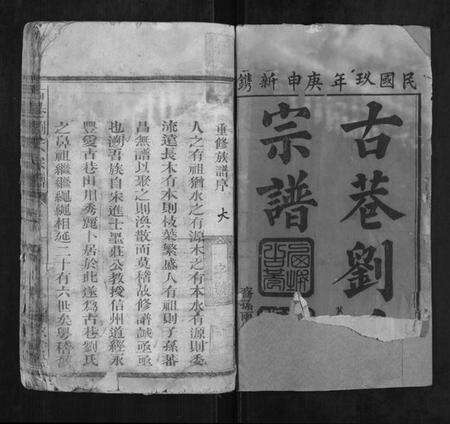 民國玖年庚申新鐫
古巷劉
宗譜
重修族譜序
大
人之有祖猶水之有源木之有本水有源則委
流遠長木有本則枝葉繁盛人有祖則子孫蕃
昌無譜以聚之則渙散而莫稽故修譜誠亟亟
也溯吾族自宋進士墨莊公教授信州道經永
豐愛古巷山川秀麗卜居於此遂為古巷劉氏
之鼻祖繼繼繩繩相延二十有六世矣